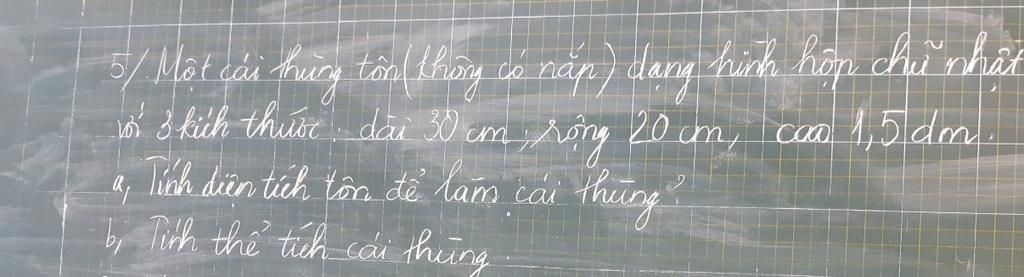 5/. Một cái thùng tôn (không có nắp) dạng hình hộp chữ nhật
với 3 kích thước: dài 30 cm; rộng 20 cm, cao 1,5 dm.
a, Tính diện tích tôn để làm cái thùng?
b, Tính thể tích cái thùng.